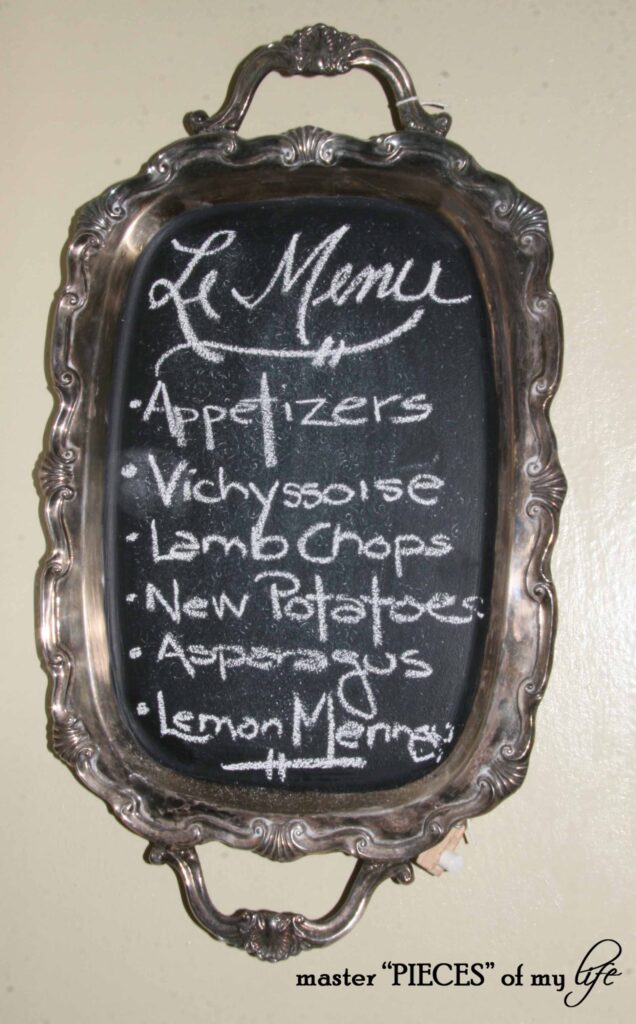 Le Menu
• Appetizers
• Vichyssoise
• Lamb Chops
• New Potatoes
• Asparagus
• Lemon
master "PIECES" of my life